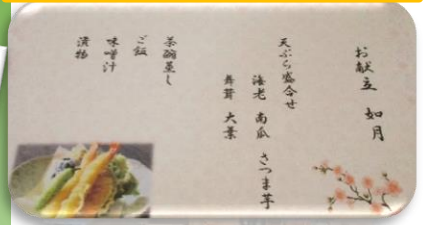 お献立 如月
天ぷら盛合せ
海老 南瓜 さつま芋
舞茸 大葉
茶碗蒸し
ご飯
味噌汁
漬物